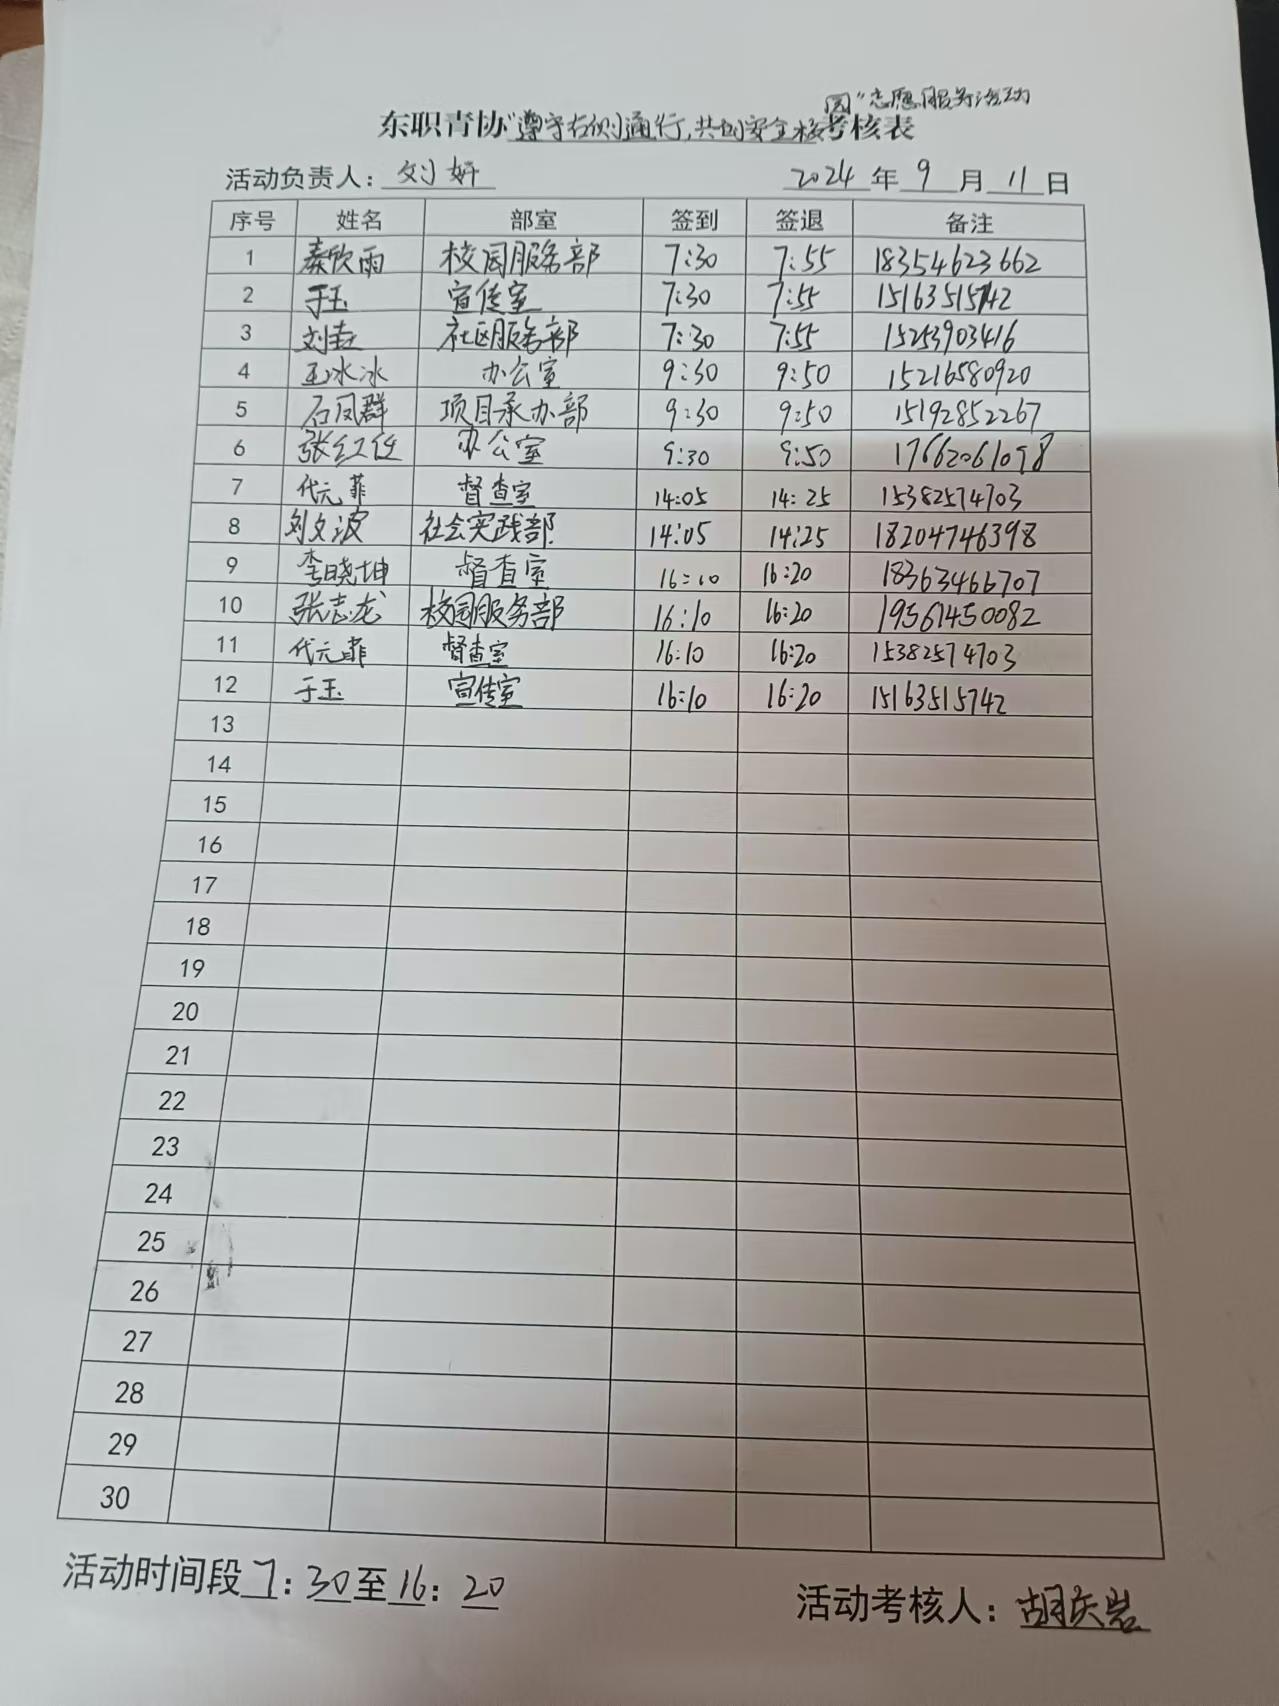 园"志愿服务活动
东职青协"遵守右侧通行,共创安全校考核表
活动负责人: 刘妍 2024 年 9 月 11 日
序号 姓名 部室 签到 签退 备注
1 秦欣雨 校园服务部 7:30 7:55 18354623662
2 于玉 宣传室 7:30 7:55 15163515742
3 刘 社区服务部 7:30 7:55 15253903416
4 王冰冰 办公室 9:30 9:50 15216580920
5 石凤群 项目承办部 9:30 9:50 15192852267
6 张红任 办公室 9:30 9:50 17662061098
7 代元菲 督查室 14:05 14:25 15382574703
8 刘文波 社会实践部 14:05 14:25 18204746398
9 李晓坤 督查室 16:10 16:20 18363466707
10 张志龙 校园服务部 16:10 16:20 19561450082
11 代元菲 督查室 16:10 16:20 15382574703
12 于玉 宣传室 16:10 16:20 15163515742
13
14
15
16
17
18
19
20
21
22
23
24
25
26
27
28
29
30
活动时间段 7:30至16:20
活动考核人: 胡庆岩